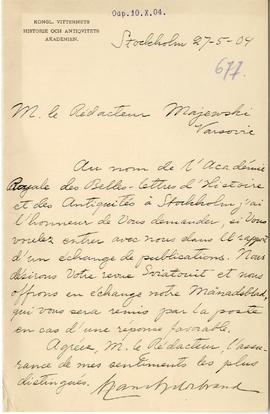 Odp. 10.X.04.
KONGL. VITTERHETS
HISTORIE OCH ANTIQVITETS
AKADEMIEN.
Stockholm 27-5-04
677.
M. le Rédacteur Majewski
Varsovie
Au nom de l'Académie
Royale des Belles-lettres d'Histoire
et des Antiquités à Stockholm, j'ai
l'honneur de Vous demander, si Vous
voulez entrer avec nous dans le rapport
d'un échange de publications. Nous
désirons Votre revue Sviatowit et nous
offrons en échange notre Månadsblad,
qui vous sera remis par la poste
en cas d'une réponse favorable.
Agréez, M. le Rédacteur, l'assu-
rance de mes sentiments les plus
distingués.